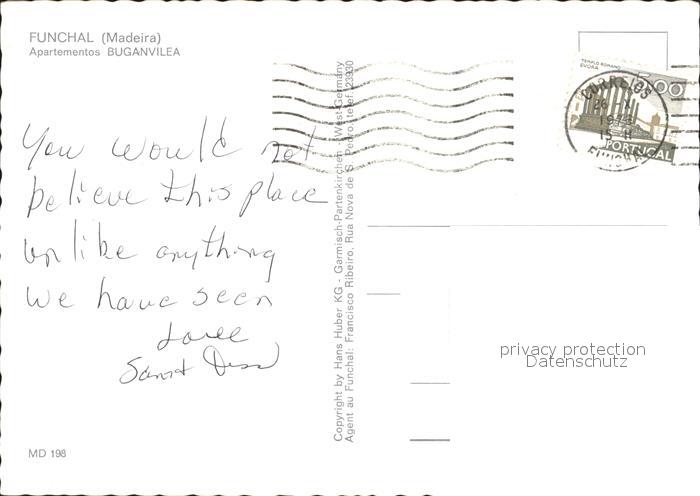 FUNCHAL (Madeira)
Apartementos BUGANVILEA
You would not
believe this place
unlike anything
we have seen
Love
MD 198
Copyright by Hans Huber KG - Garmisch-Partenkirchen - West-Germany
Agent au Funchal: Francisco Ribeiro, Rua Nova de S. Pedro, telef. 23930
TEMPLO ROMANO
EVORA
5.00
PORTUGAL
CORREIOS
FUNCHAL
privacy protection
Datenschutz